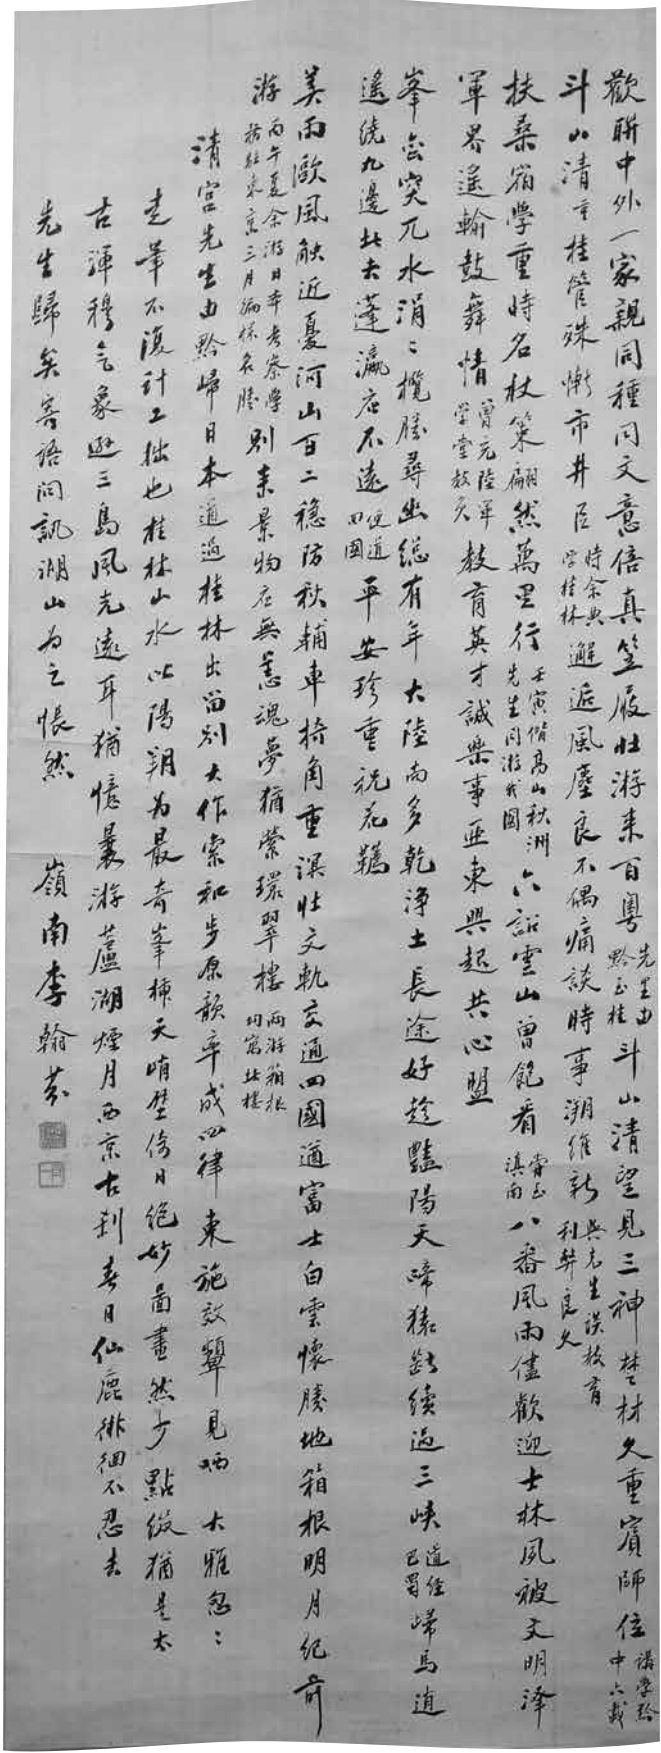 歡聯中外一家親同種同文意倍真笠屐壯游來百粵先生由黔至桂斗山清望見三神楚材久重賓師位講學黔中六載
斗山清重桂管殊慚市井臣時余典學桂林邂逅風塵良不偶痛談時事溯維新與先生談教育利弊良久
扶桑宿學重時名杖策翩然萬里行壬寅偕高山秋洲先生同游我國六詔雲山曾飽看嘗至滇南八番風雨儘歡迎士林夙被文明澤
軍界遙輸鼓舞情曾充陸軍學堂教員教育英才誠樂事亞東興起共心盟
峯巒突兀水涓涓攬勝尋幽総有年大陸尚多乾淨土長途好趁豔陽天啼猿斷續過三峽道經巴蜀歸馬逍
遙繞九邊此去蓬瀛應不遠便道回國平安珍重祝花韉
美雨歐風觸近憂河山百二穩防秋輔車犄角重謨壯文軌交通四國遒富士白雲懷勝地箱根明月紀前
游丙午夏余游日本考察學務駐東京三月徧探名勝別來景物應無恙魂夢猶縈環翠樓兩游箱根均寓此樓
清宮先生由黔歸日本道過桂林出留別大作索和步原韻率成四律東施效顰見哂大雅怱怱
走筆不復計工拙也桂林山水以陽朔為最奇峯插天峭壁倚日絕妙畫畫然少點綴猶是太
古渾穆氣象遜三島風光遠耳猶憶曩游蘆湖煙月西京古刹春日仙鹿徘徊不忍去
先生歸矣寄語問訊湖山為之悵然 嶺南李翰芬